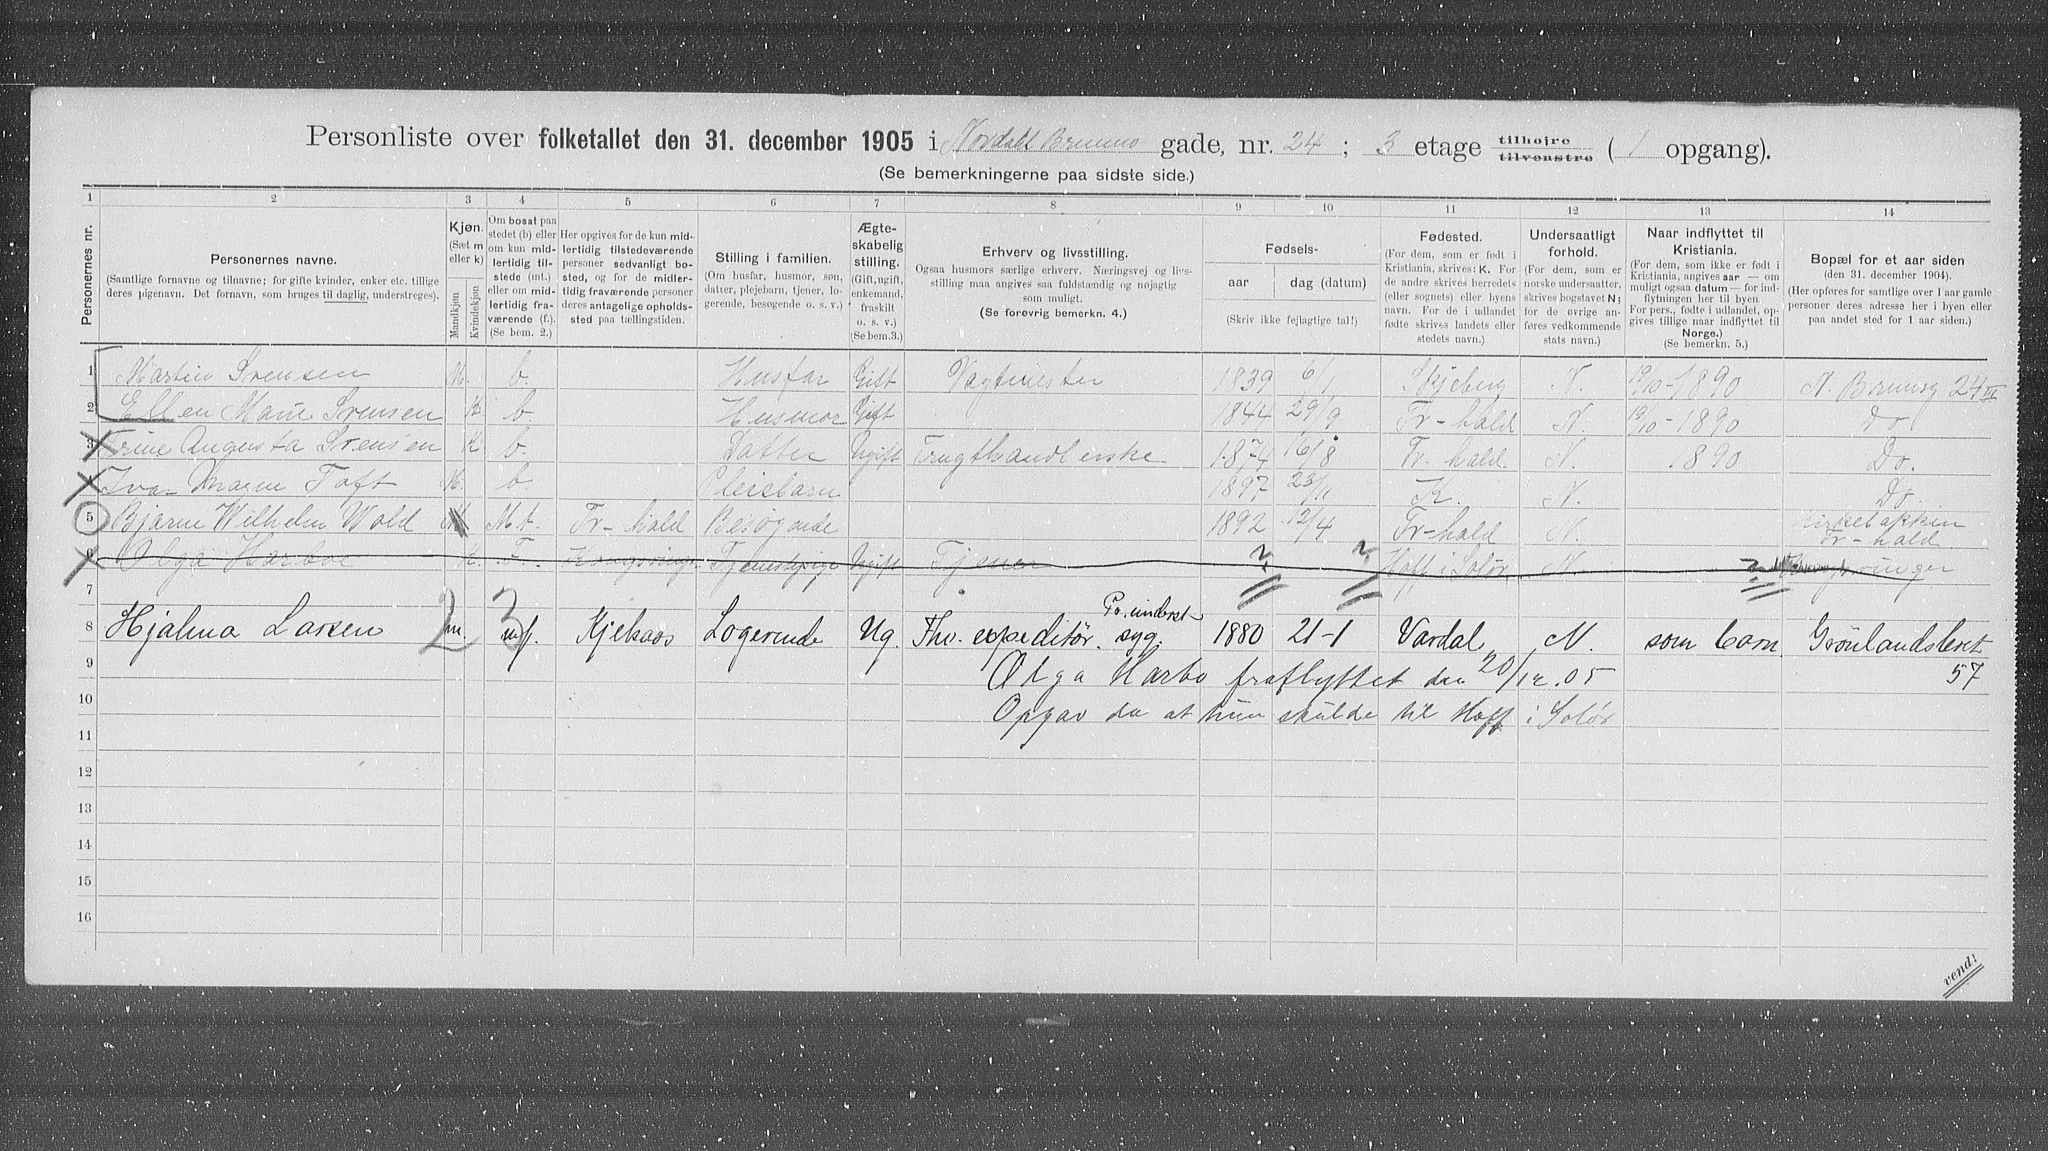 Personliste over folketallet den 31. december 1905 i Nordahl Bruuns gade, nr. 24 ; 3 etage tilhøjre tilvenstre ( 1 opgang).
(Se bemerkningerne paa sidste side.)
1 2 3 4 5 6 7 8 9 10 11 12 13 14
Personernes nr.
Personernes navne.
(Samtlige fornavne og tilnavne; for gifte kvinder, enker etc. tillige deres pigenavn. Det fornavn, som bruges til daglig, understreges).
Kjøn.
(Sæt m eller k)
Mandkjøn.
Kvindekjøn.
Om bosat paa stedet (b) eller om kun midlertidig tilstede (mt.) eller om midlertidig fraværende (f.). (Se bem. 2.)
Her opgives for de kun midlertidig tilstedeværende personer sedvanligt bosted, og for de midlertidig fraværende personer deres antagelige opholdssted paa tællingstiden.
Stilling i familien.
(Om husfar, husmor, søn, datter, plejebarn, tjener, logerende, besøgende o. s. v.)
Ægteskabelig stilling.
(Gift, ugift, enkemand, fraskilt o. s. v.)
(Se bem. 3.)
Erhverv og livsstilling.
Ogsaa husmors særlige erhverv. Næringsvej og livsstilling maa angives saa fuldstændig og nøjagtig som muligt.
(Se forøvrig bemerkn. 4.)
Fødsels-
aar
dag (datum)
(Skriv ikke fejlagtige tal!)
Fødested.
(For dem, som er født i Kristiania, skrives: K. For de andre skrives herredets (eller sognets) eller byens navn. For de i udlandet fødte skrives landets eller stedets navn.)
Undersaatligt forhold.
(For dem, som er norske undersaatter, skrives bogstavet N; for de øvrige anføres vedkommende stats navn.)
Naar indflyttet til Kristiania.
(For dem, som ikke er født i Kristiania, angives aar — om muligt ogsaa datum — for indflytningen her til byen. For pers., fødte i udlandet, opgives tillige naar indflyttet til Norge.)
(Se bemerkn. 5.)
Bopæl for et aar siden
(den 31. december 1904).
(Her opføres for samtlige over 1 aar gamle personer deres adresse her i byen eller paa andet sted for 1 aar siden.)
1 Martin Svensen M. b. Husfar Gift Vagtmester 1839 6/1 Skjeberg N. 19/10-1890 N. Brunsg 24 III
2 Ellen Marie Svensen K b Husmor Gift 1844 29/9 Fr-hald N. 19/10-1890 Do
3 Trine Augusta Svensen K b. Datter Ugift Frugthandlerske 1874 16/8 Fr. hald. N. 1890 Do.
4 Magne Toft M. b. Pleiebarn 1897 23/11 K. N. Do.
5 Bjarne Wilhelm Wold M M.t. Fr-hald Besøgende 1892 12/4 Fr-hald N. Kirkebakken Fr-hald.
6 Olga Harboe K. F. Kongsvinger Tjenestepige Ugift Tjener ? ? Hoff i Solør N. ? Kongsvinger
7
8 Hjalma Larsen m. 2 3 mf. Kjelsaas Logerende Ug. Fhv. expeditør. Fo. underst. syg. 1880 21-1 Vardal N. som barn Grönlandsleret 57
9 Olga Harbo fraflyttet den 20/12.05
10 Opgav da at hun skulde til Hoff i Solør
11
12
13
14
15
16
vend!